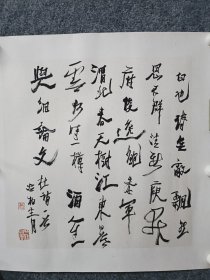 白也詩無敵飄然
思不群清新庾開
府俊逸鮑參軍
渭北春天樹江東日暮
雲何時一樽酒重
與細論文
杜詩一首